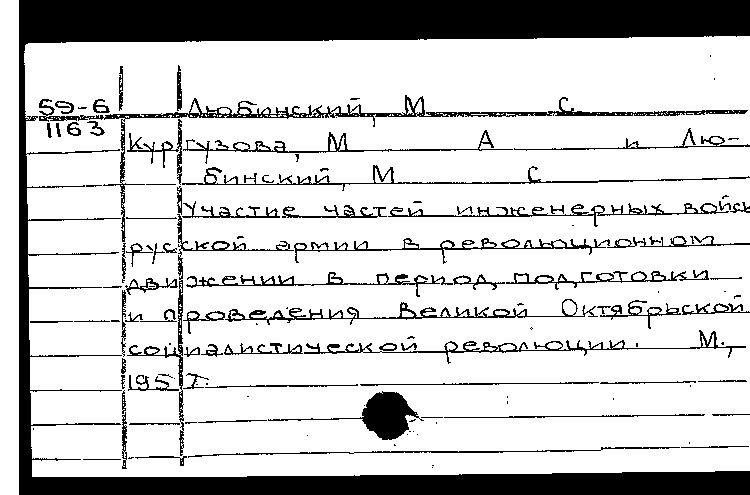 59-6 Любинский, М С.
1163
Кургузова, М А и Лю-
бинский, М С
Участие частей инженерных войск
русской армии в революционном
движении в период подготовки
и проведения Великой Октябрьской
социалистической революции. М.,
1957.